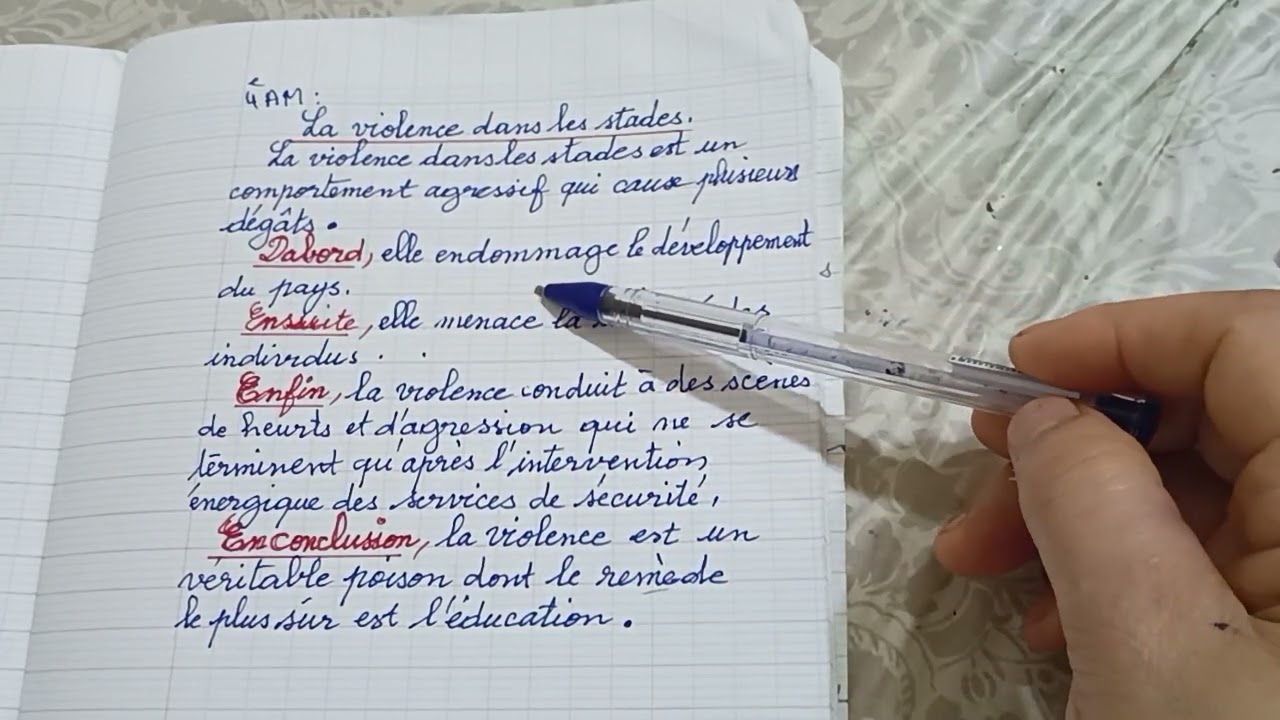 4 AM:
La violence dans les stades.
La violence dans les stades est un
comportement agressif qui cause plusieurs
dégâts.
Dabord, elle endommage le développement
du pays.
Ensuite, elle menace la des
individus.
Enfin, la violence conduit à des scènes
de heurts et d'agression qui ne se
terminent qu'après l'intervention
énergique des services de sécurité,
En conclusion, la violence est un
véritable poison dont le remède
le plus sûr est l'éducation.